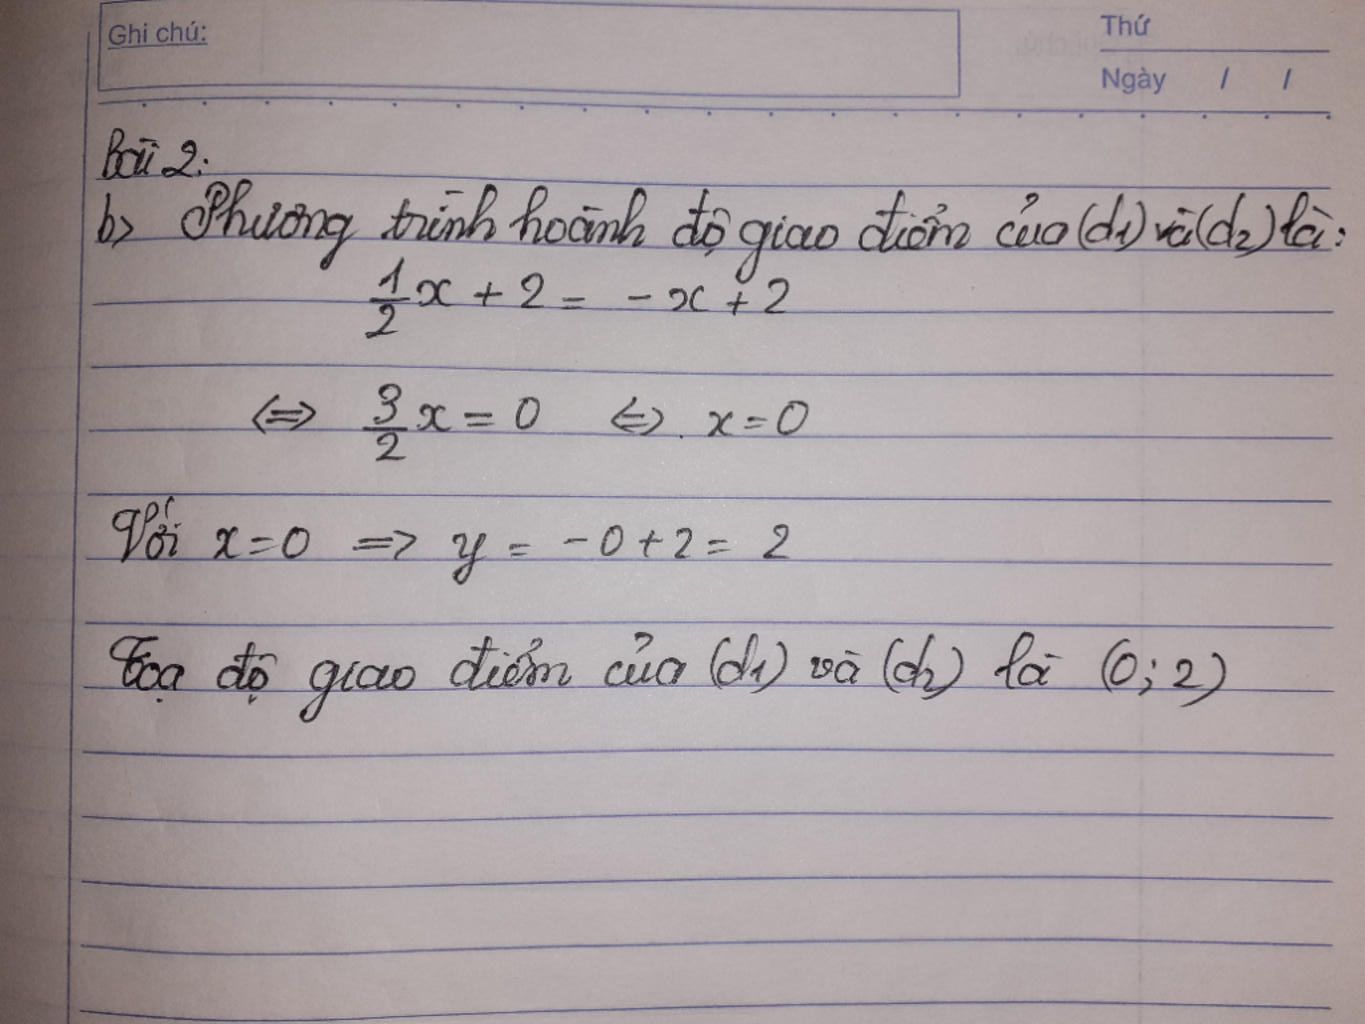 Ghi chú:
Thứ
Ngày / /
Bài 2:
b) Phương trình hoành độ giao điểm của (d1) và (d2) là:
1/2 x + 2 = - x + 2
<=> 3/2 x = 0 <=> x = 0
Với x = 0 => y = - 0 + 2 = 2
Tọa độ giao điểm của (d1) và (d2) là (0; 2)